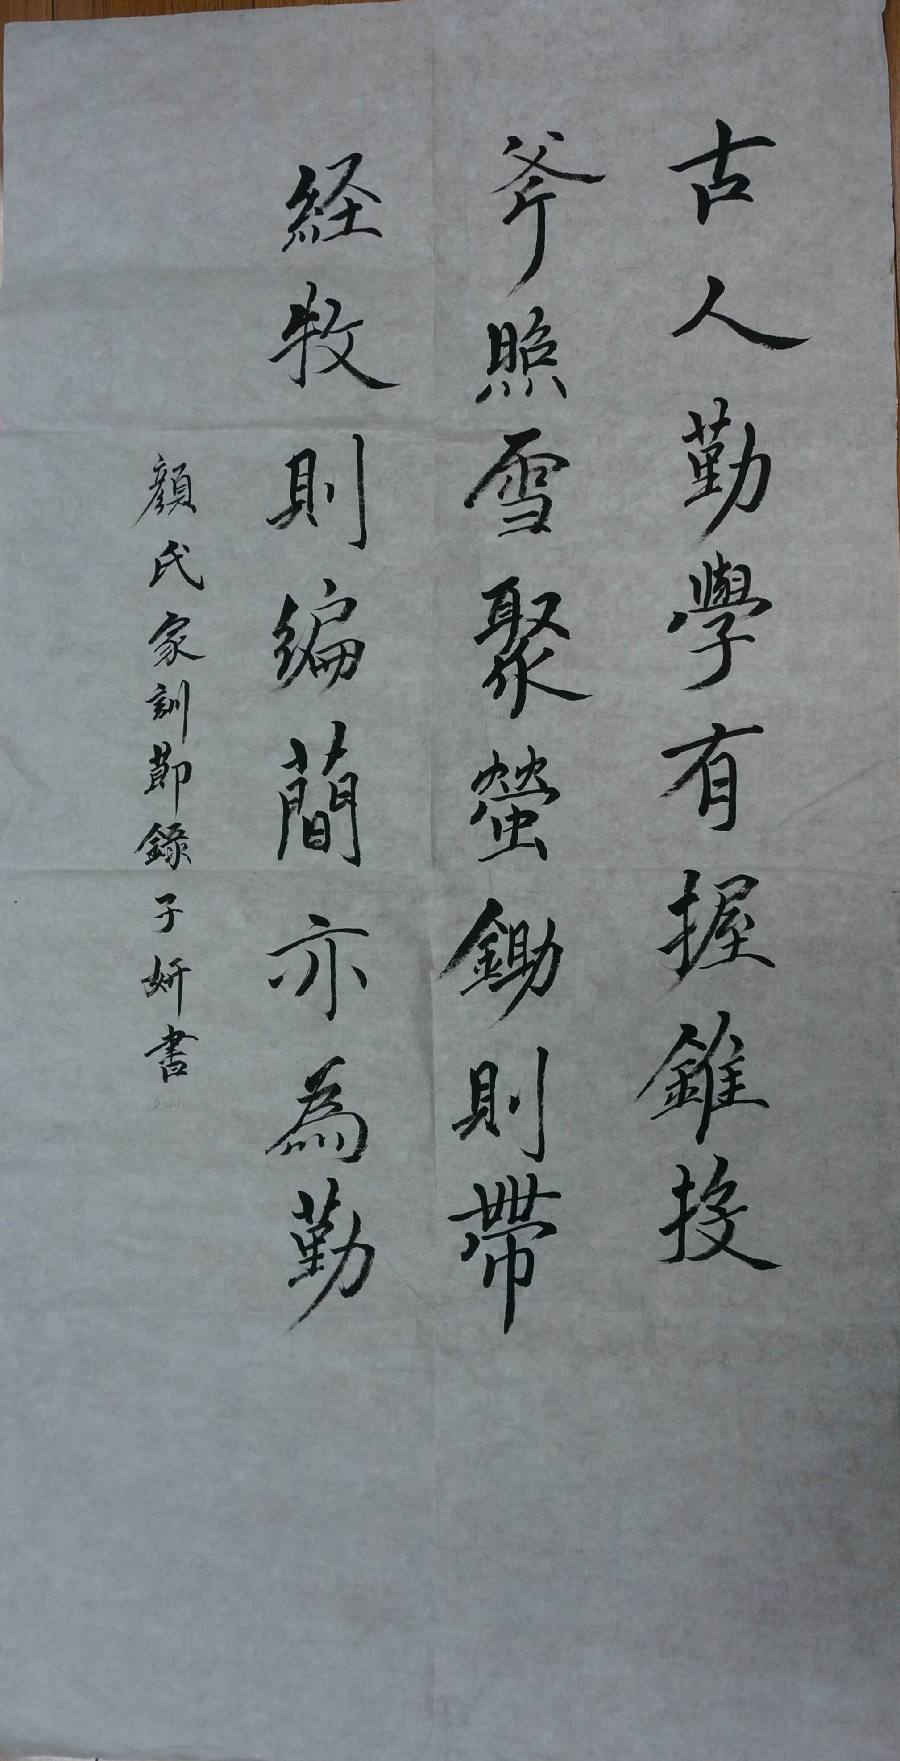 古人勤學有握錐投
斧照雪聚螢鋤則帶
経牧則編蕳亦為勤
顔氏家訓節錄子妍書